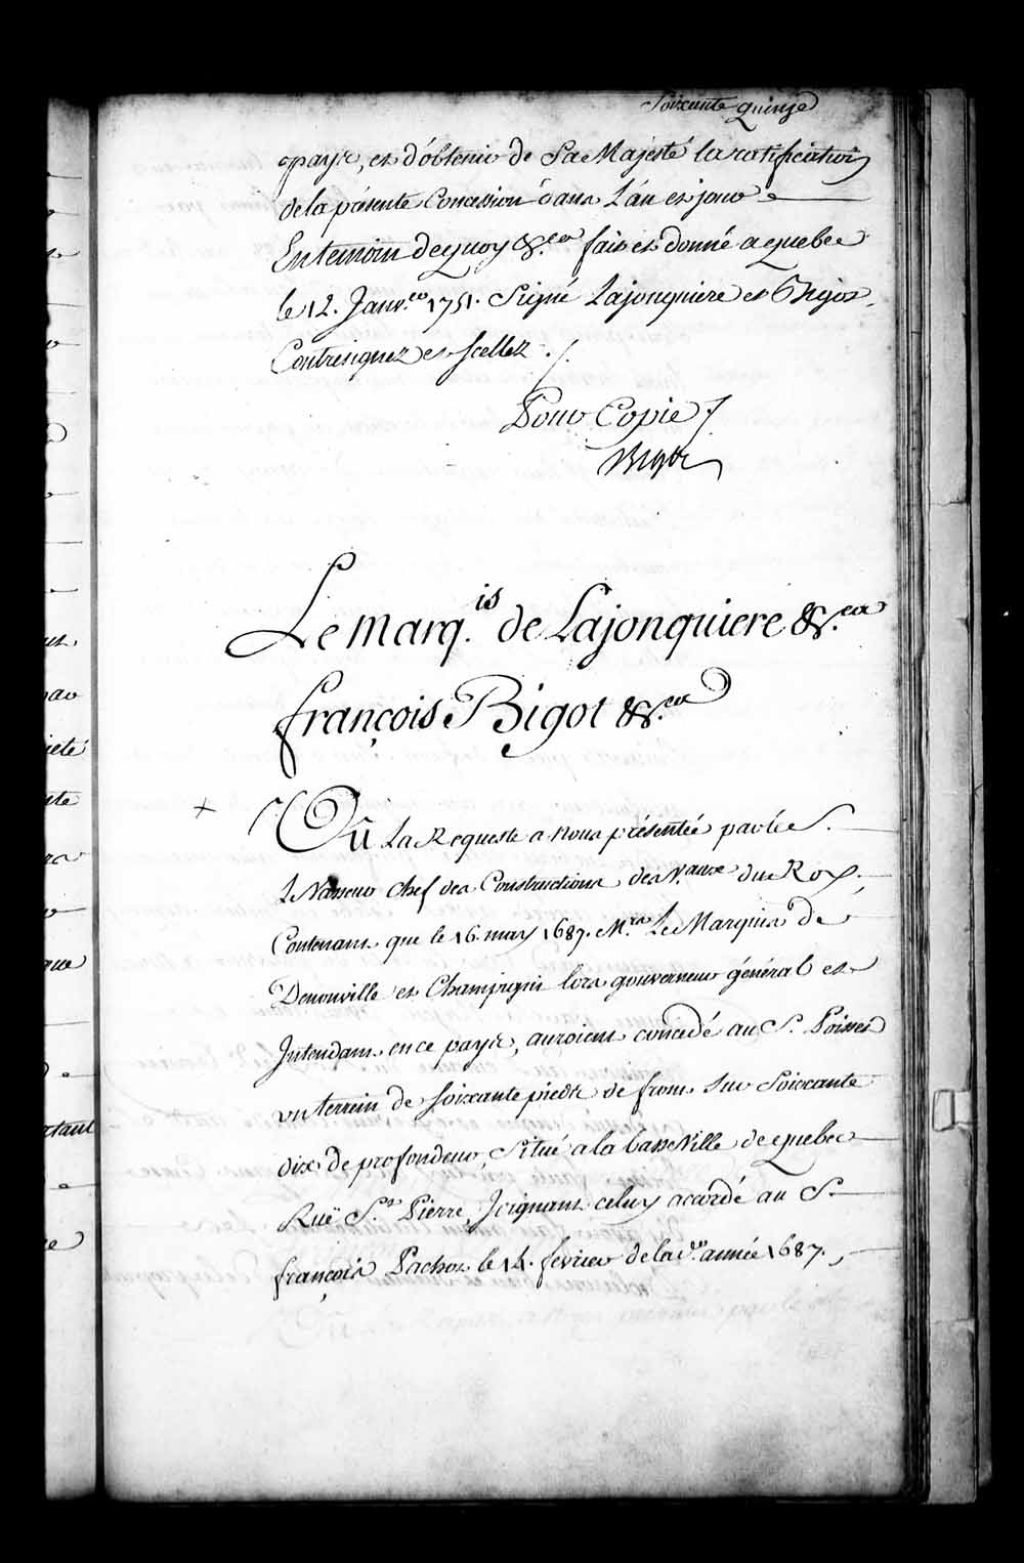 Soixante quinze
payis, et d'obtenir de Sa Majesté la ratification
de la présente Concession dans L'an et jour
En temoin de quoy &.ca fait et donné a quebec
le 12. Janv.er 1751. Signé Lajonquiere et Bigot,
Contresignez et scellez ./.
Pour Copie ./.
Bigot
Le Marq.is de Lajonquiere &.ca
françois Bigot &.ca
+ Vû La Requeste a nous présentée par le S.
Levasseur chef des Constructions des V.aux du Roy,
Contenant que le 16. may 1687. M.rs Le Marquis de
Denonville et Champigni lors gouverneur général et
Intendant en ce payis, auroient concedé au S.r Poisset
un terrein de soixante pieds de front sur Soixante
dix de profondeur, Situé a la basse Ville de quebec
Ruë S.t Pierre, Joignant celuy acordé au S.
françois Pachot le 14. fevrier de la d.e année 1687.,
ut
eté
nte
rtant